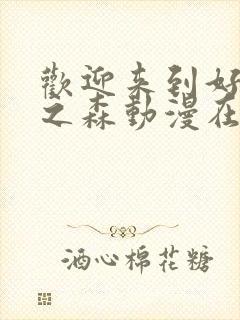 歡迎来到好
之森動漫在
酒心棉花糖